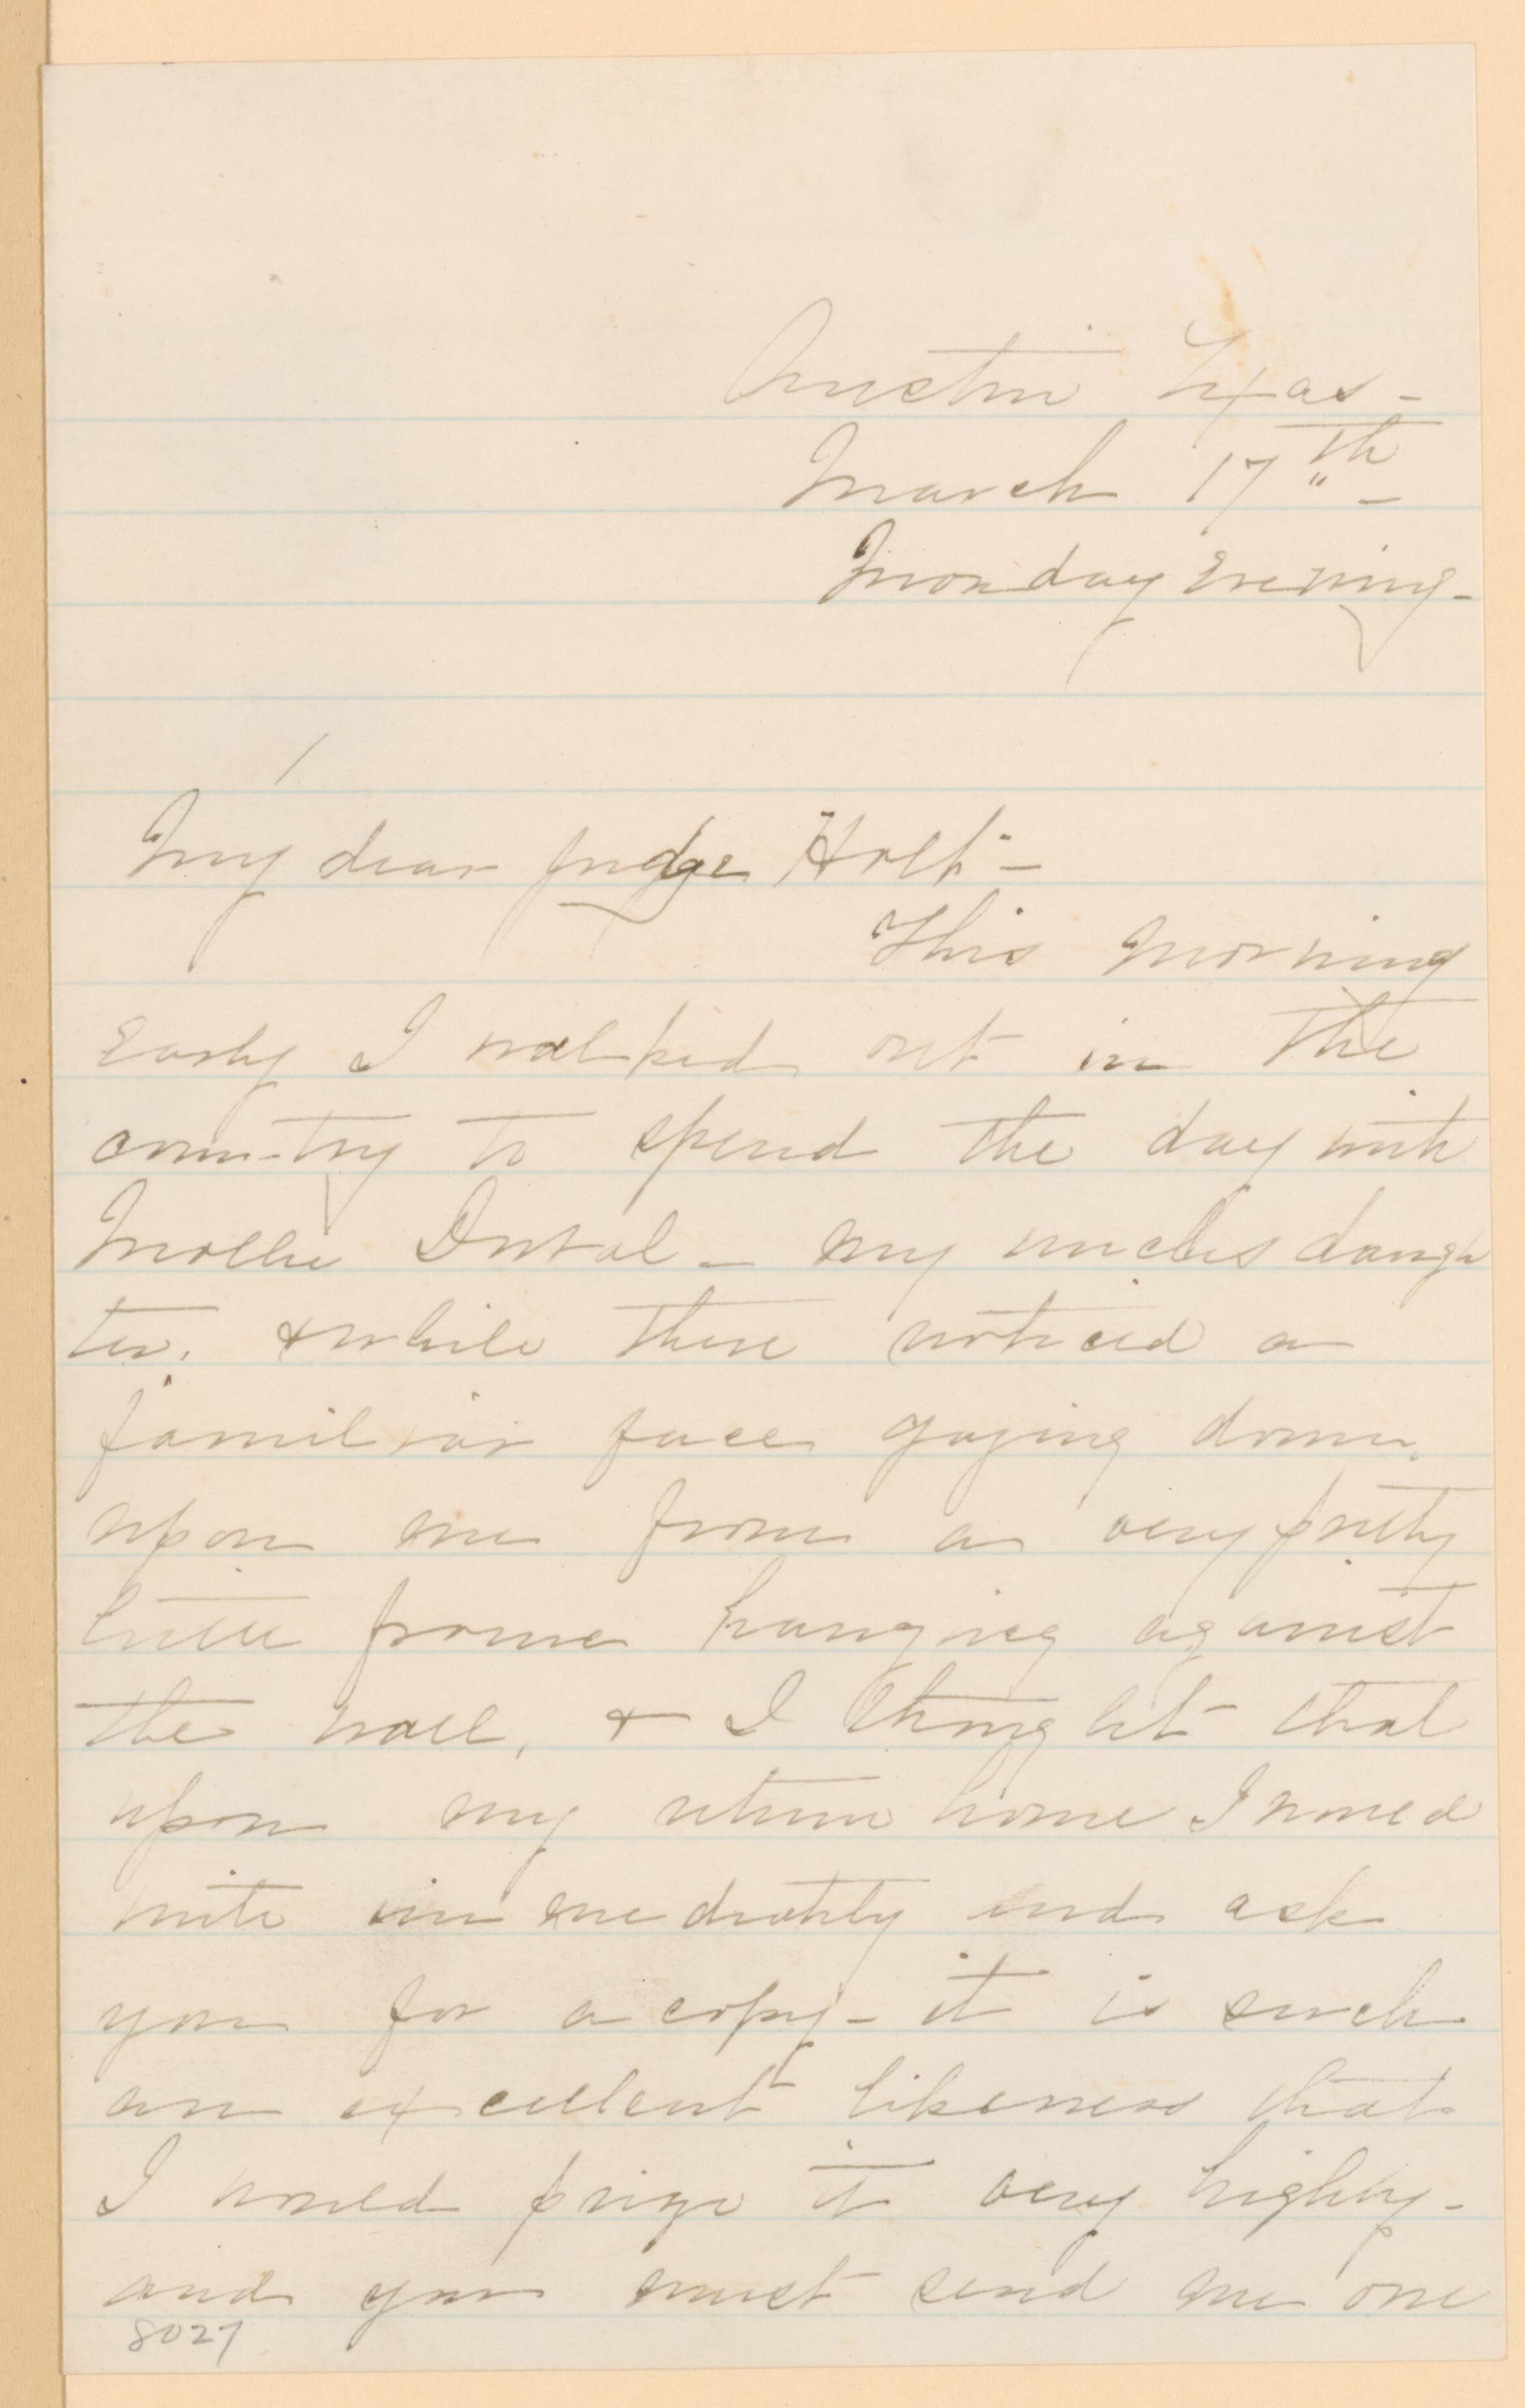 Austin Texas -
March 17th -
Monday Evening -
My dear Judge Holt -
This morning
Early I walked out in the
country to spend the day with
Mollie Duval - my uncles daugh
ter. & while there noticed a
familiar face gazing down
upon me from a very pretty
little frame hanging against
the wall, & I thought that
upon my return home I would
write immediately and ask
you for a copy - it is such
an excellent likeness that
I would prize it very highly -
and you must send me one
8027